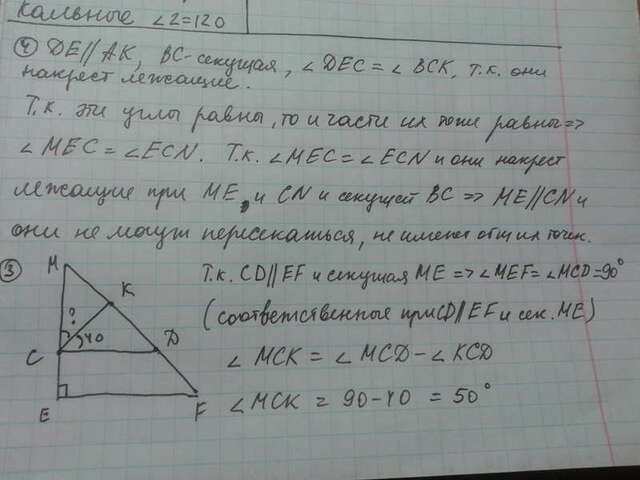 кальные ∠2=120
④ DE//AK, BC-секущая, ∠DEC = ∠BCK, т.к. они
накрест лежащие.
Т.к. эти углы равны, то и части их тоже равны =>
∠MEC = ∠ECN. Т.к. ∠MEC = ∠ECN и они накрест
лежащие при ME, и CN и секущей BC => ME//CN и
они не могут пересекаться, не имеют общих точек.
③
M
K
?
40
C
D
E
F
Т.к. CD//EF и секущая ME => ∠MEF = ∠MCD = 90°
(соответственные при CD//EF и сек. ME)
∠MCK = ∠MCD - ∠KCD
∠MCK = 90-40 = 50°